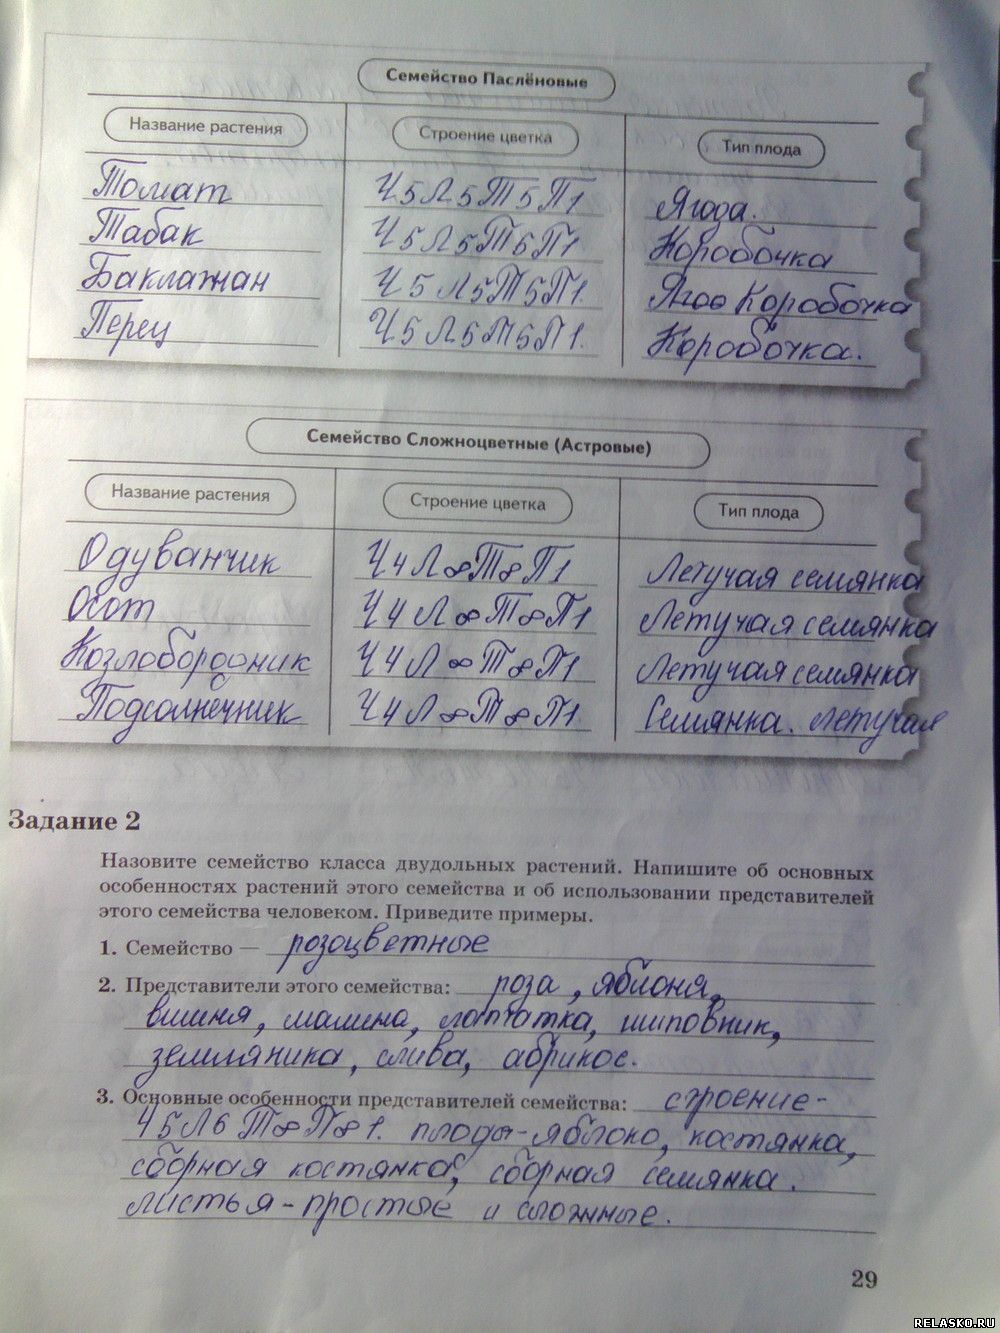 Семейство Паслёновые
Название растения Строение цветка Тип плода
Томат Ч5Л5Т5П1 Ягода.
Табак Ч5Л5Т5П1 Коробочка
Баклажан Ч5Л5Т5П1. Коробочка
Перец Ч5Л5Т5П1. Коробочка.
Семейство Сложноцветные (Астровые)
Название растения Строение цветка Тип плода
Одуванчик Ч4Л∞Т∞П1 Летучая семянка
Осот Ч4Л∞Т∞П1 Летучая семянка
Козлобородник Ч4Л∞Т∞П1 Летучая семянка
Подсолнечник Ч4Л∞Т∞П1 Семянка. летучая
Задание 2
Назовите семейство класса двудольных растений. Напишите об основных
особенностях растений этого семейства и об использовании представителей
этого семейства человеком. Приведите примеры.
1. Семейство — розоцветные
2. Представители этого семейства: роза, яблоня,
вишня, малина, лапчатка, шиповник,
земляника, слива, абрикос.
3. Основные особенности представителей семейства: строение-
Ч5Л5Т∞П∞1. плоды-яблоко, костянка,
сборная костянка, сборная семянка.
листья-простые и сложные.
29
RELASKO.RU